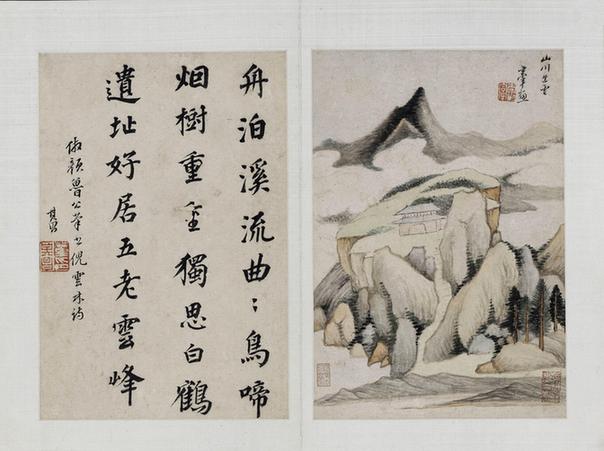 山川出雲
玄宰畫
舟泊溪流曲〻鳥啼
烟樹重重獨思白鶴
遺址好居五老雲峰
倣顏魯公筆書倪雲林詩
其昌